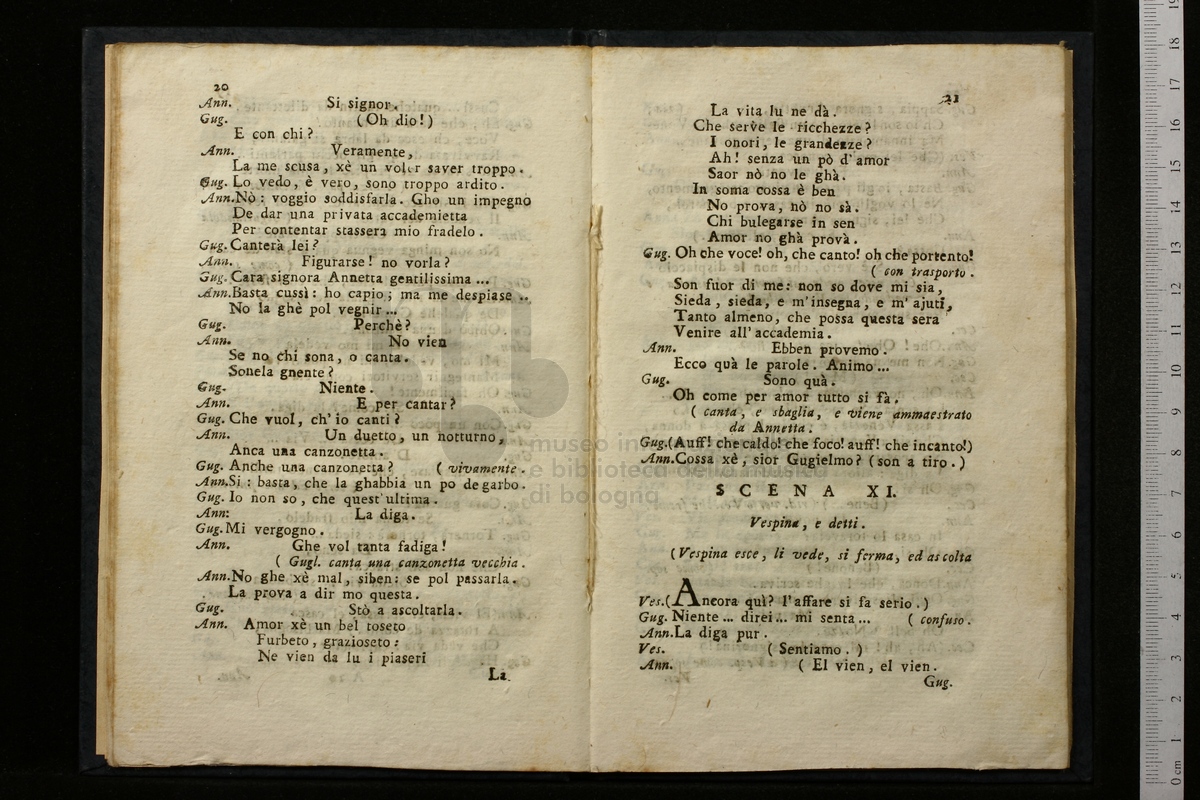 20
Ann. Si signor.
Gug. (Oh dio!)
E con chi?
Ann. Veramente,
La me scusa, xè un voler saver troppo.
Gug. Lo vedo, è vero, sono troppo ardito.
Ann. Nò: voggio soddisfarla. Gho un impegno
De dar una privata accademietta
Per contentar stassera mio fradelo.
Gug. Canterà lei?
Ann. Figurarse! no vorla?
Gug. Cara signora Annetta gentilissima ...
Ann. Basta cussì: ho capio; ma me despiase ..
No la ghè pol vegnir ...
Gug. Perchè?
Ann. No vien
Se no chi sona, o canta.
Sonela gnente?
Gug. Niente.
Ann. E per cantar?
Gug. Che vuol, ch'io canti?
Ann. Un duetto, un notturno,
Anca una canzonetta.
Gug. Anche una canzonetta? (vivamente.
Ann. Si: basta, che la ghabbia un po de garbo.
Gug. Io non so, che quest'ultima.
Ann: La diga.
Gug. Mi vergogno.
Ann. Ghe vol tanta fadiga!
(Gugl. canta una canzonetta vecchia.
Ann. No ghe xè mal, siben: se pol passarla.
La prova a dir mo questa.
Gug. Stò a ascoltarla.
Ann. Amor xè un bel toseto
Furbeto, grazioseto:
Ne vien da lu i piaseri
La
21
La vita lu ne dà.
Che serve le ricchezze?
I onori, le grandezze?
Ah! senza un pò d'amor
Saor nò no le ghà.
In soma cossa è ben
No prova, nò no sà.
Chi bulegarse in sen
Amor no ghà provà.
Gug. Oh che voce! oh, che canto! oh che portento!
(con trasporto.
Son fuor di me: non so dove mi sia,
Sieda, sieda, e m'insegna, e m'ajuti,
Tanto almeno, che possa questa sera
Venire all'accademia.
Ann. Ebben provemo.
Ecco quà le parole. Animo ...
Gug. Sono quà.
Oh come per amor tutto si fà.
(canta, e sbaglia, e viene ammaestrato
da Annetta.
Gug. (Auff! che caldo! che foco! auff! che incanto!)
Ann. Cossa xè, sior Gugielmo? (son a tiro.)
SCENA XI.
Vespina, e detti.
(Vespina esce, li vede, si ferma, ed ascolta
Ves. (Ancora quì? l'affare si fa serio.)
Gug. Niente ... direi ... mi senta ... (confuso.
Ann. La diga pur.
Ves. (Sentiamo.)
Ann. (El vien, el vien.
Gug.
museo in
e biblioteca della musica
di bologna
0 cm 1 2 3 4 5 6 7 8 9 10 11 12 13 14 15 16 17 18 19